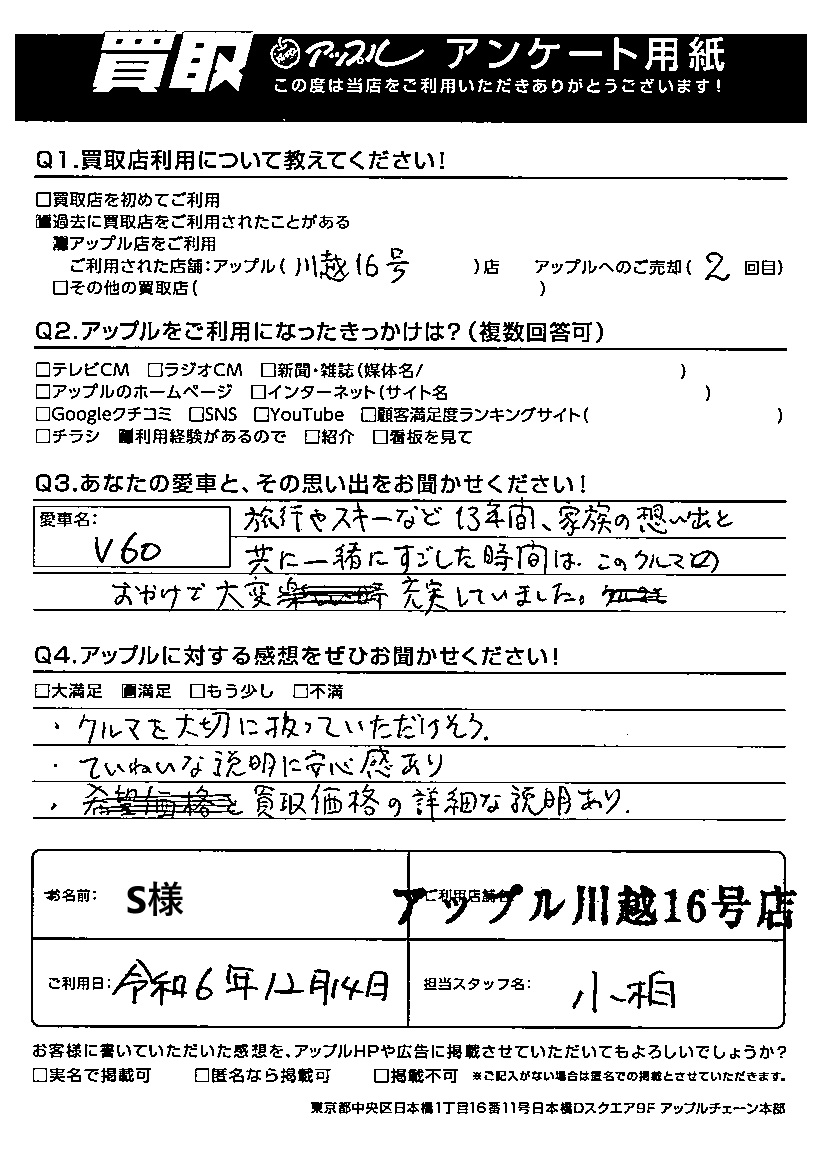 買取 アップル アンケート用紙
この度は当店をご利用いただきありがとうございます!
Q1.買取店利用について教えてください!
□買取店を初めてご利用
■過去に買取店をご利用されたことがある
■アップル店をご利用
ご利用された店舗:アップル( 川越16号 )店 アップルへのご売却( 2 回目)
□その他の買取店( )
Q2.アップルをご利用になったきっかけは?(複数回答可)
□テレビCM □ラジオCM □新聞・雑誌(媒体名/ )
□アップルのホームページ □インターネット(サイト名 )
□Googleクチコミ □SNS □YouTube □顧客満足度ランキングサイト( )
□チラシ ■利用経験があるので □紹介 □看板を見て
Q3.あなたの愛車と、その思い出をお聞かせください!
愛車名: V60
旅行やスキーなど13年間、家族の想い出と
共に一緒にすごした時間は、このクルマの
おかげで大変 充実していました。
Q4.アップルに対する感想をぜひお聞かせください!
□大満足 ■満足 □もう少し □不満
・クルマを大切に扱っていただけそう.
・ていねいな説明に安心感あり
・希望価格と買取価格の詳細な説明あり.
お名前: S様 ご利用店舗名 アップル川越16号店
ご利用日: 令和6年12月14日 担当スタッフ名: 小相
お客様に書いていただいた感想を、アップルHPや広告に掲載させていただいてもよろしいでしょうか?
□実名で掲載可 □匿名なら掲載可 □掲載不可 ※ご記入がない場合は匿名での掲載とさせていただきます。
東京都中央区日本橋1丁目16番11号日本橋Dスクエア9F アップルチェーン本部